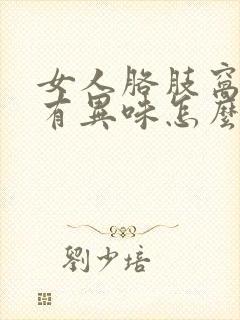 女人胳肢窩
有異味怎麼
劉少培